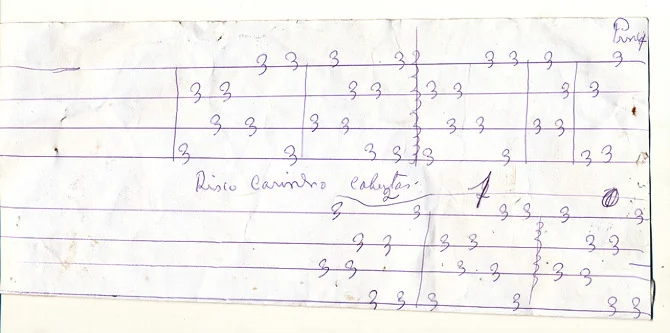 3 3 3 3 3 3 3 3
3 3 3 3 3 3 3 3
3 3 3 3 3 3 3 3
3 3 3 3 3 3 3 3
Risco 1
3 3 3 3 3 3
3 3 3 3 3 3
3 3 3 3 3 3
3 3 3 3 3 3